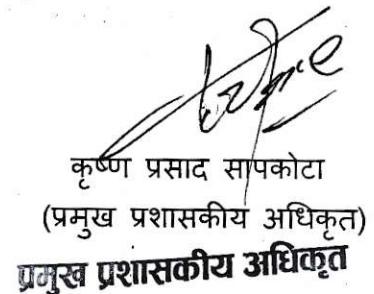 कृष्ण प्रसाद सापकोटा
(प्रमुख प्रशासकीय अधिकृत)
प्रमुख प्रशासकीय अधिकृत